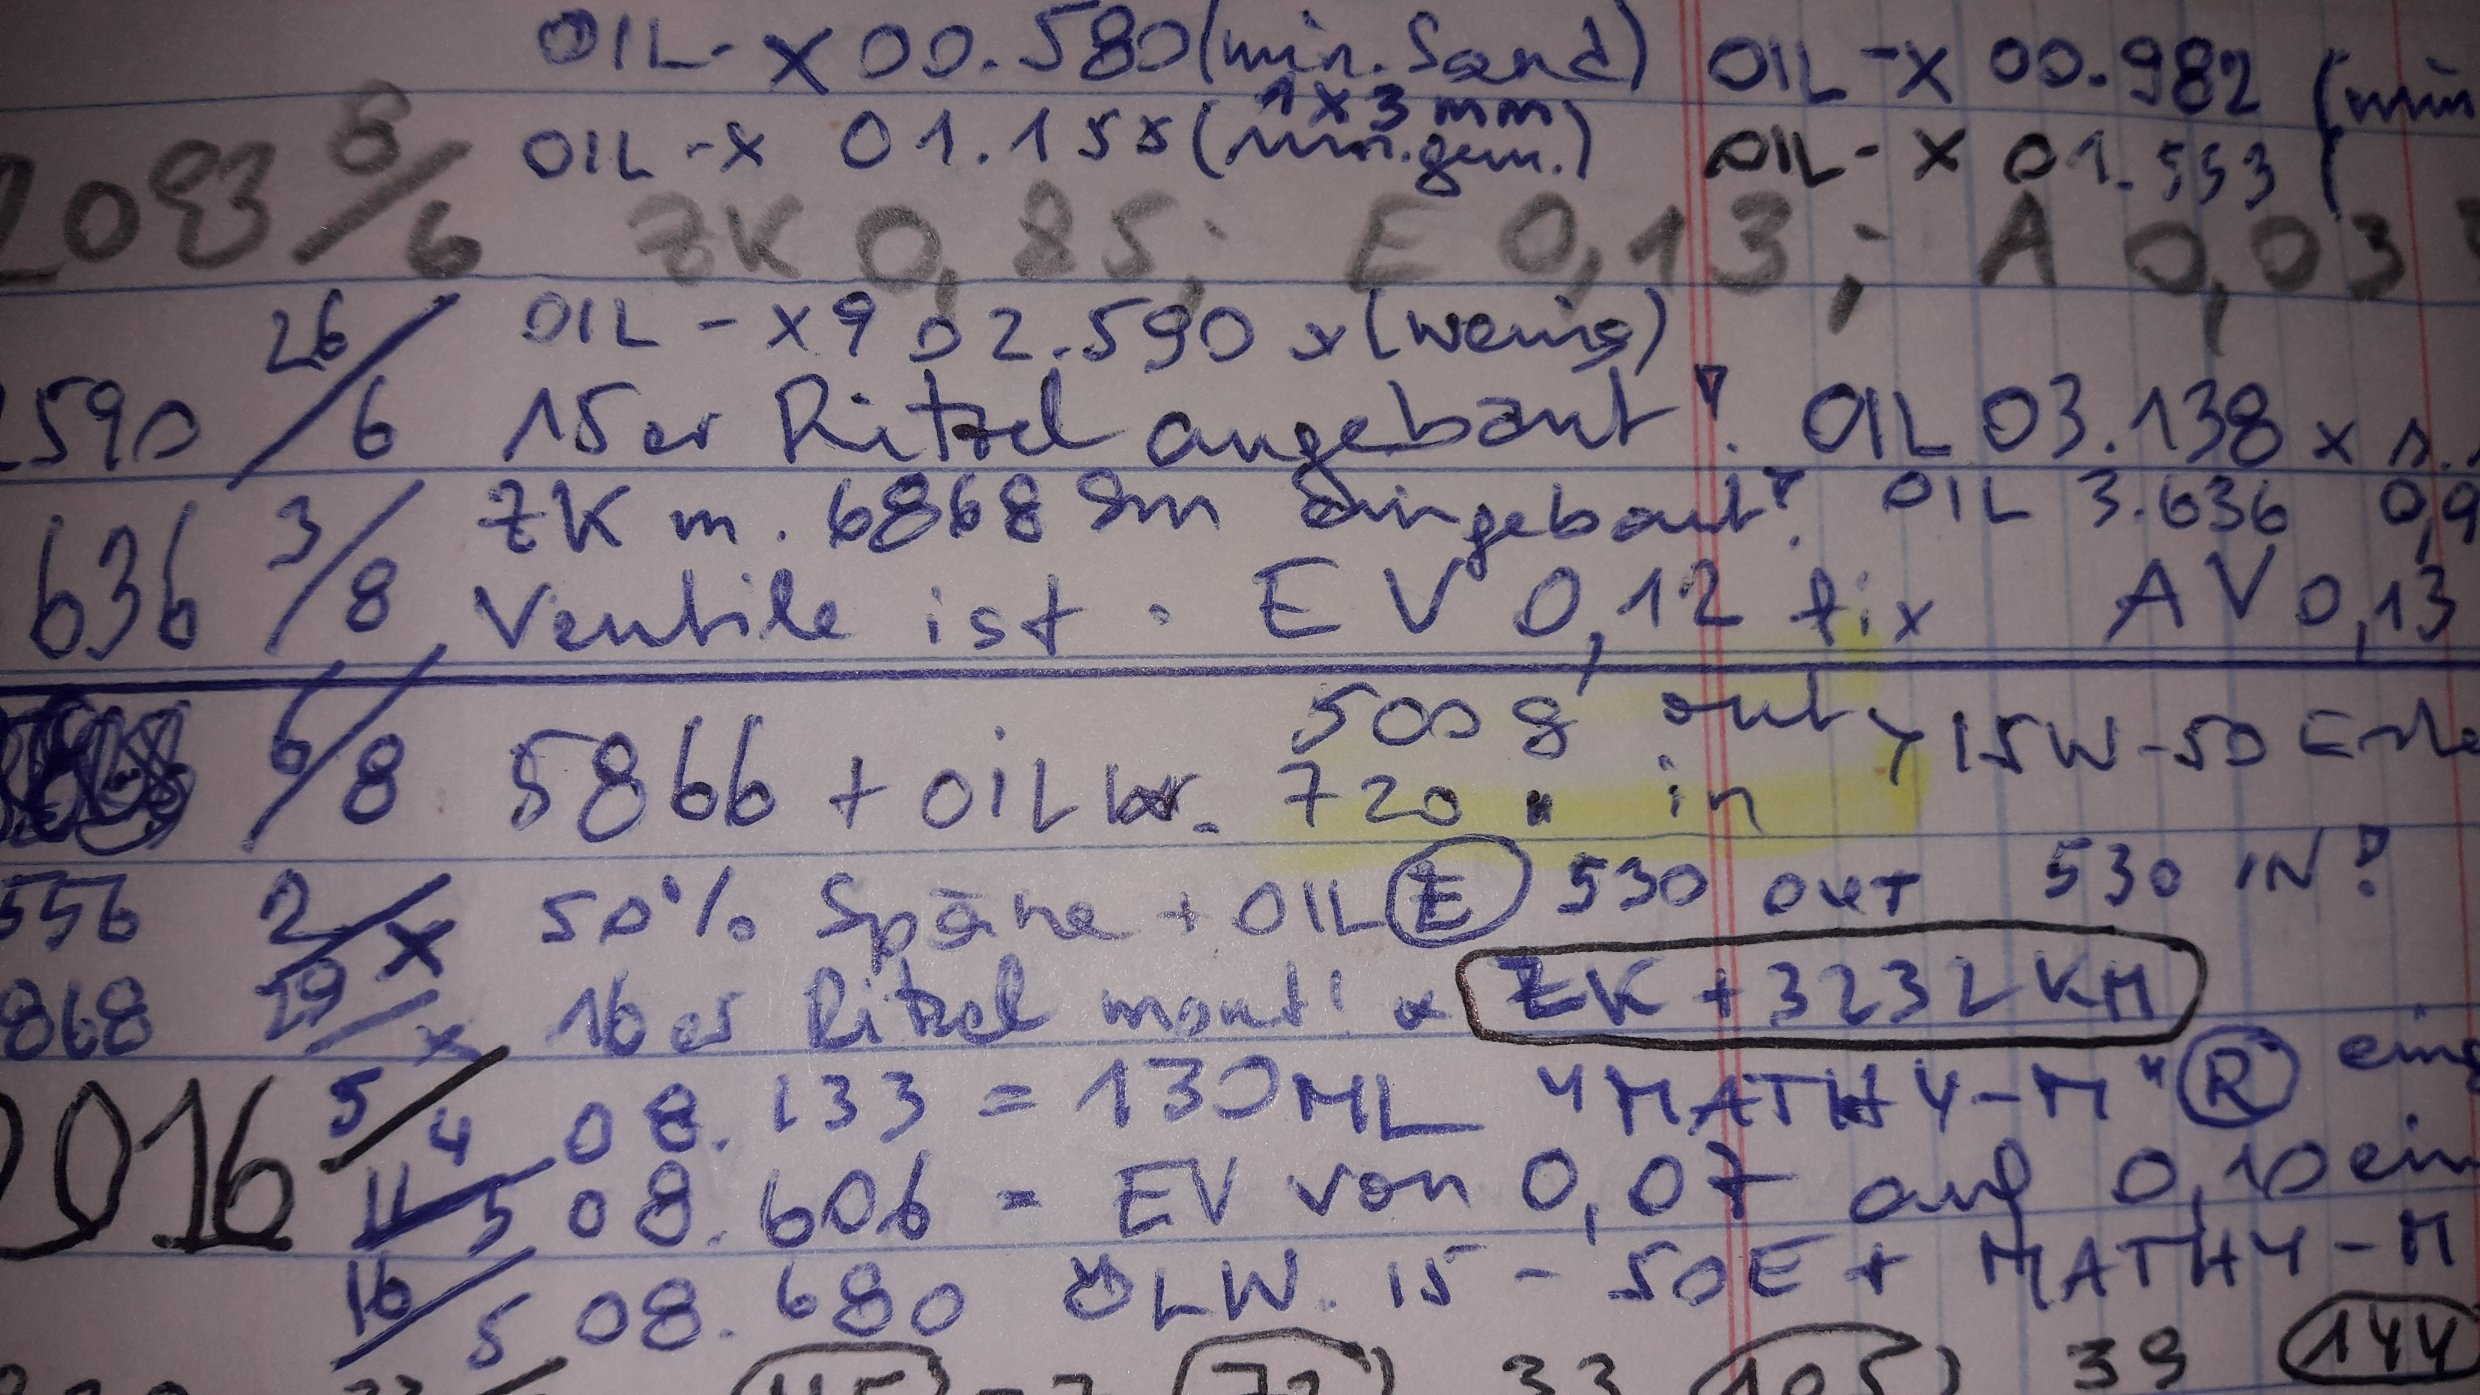 OIL-X 00.580 (min. Sand) OIL-X 00.982 (min
1x3mm
OIL-X 01.155 (min.gem.) OIL-X 01.553 (
2093 8/6 ZK 0,85; E 0,13; A 0,03
OIL-X9 02.590 x (wenig)
2590 26/6 15er Ritzel angebaut! OIL 03.138 x
636 3/8 ZK m. 6868 eingebaut! OIL 3.636 0,9
Ventile ist: EV 0,12 fix AV 0,13
500 g out
6/8 5866 + OILW. 720 " in > 15W-50
556 2/X 50% Späne + OIL Z 530 OUT 530 IN?
868 29/X 16er Ritzel mont! ZK + 3232 KM
2016 5/4 08.133 = 130ML "MATHY-M" R
11/5 08.606 = EV von 0,07 auf 0,10 ein
16/5 08.680 ÖLW. 15-50E + MATHY-M
33 39 144